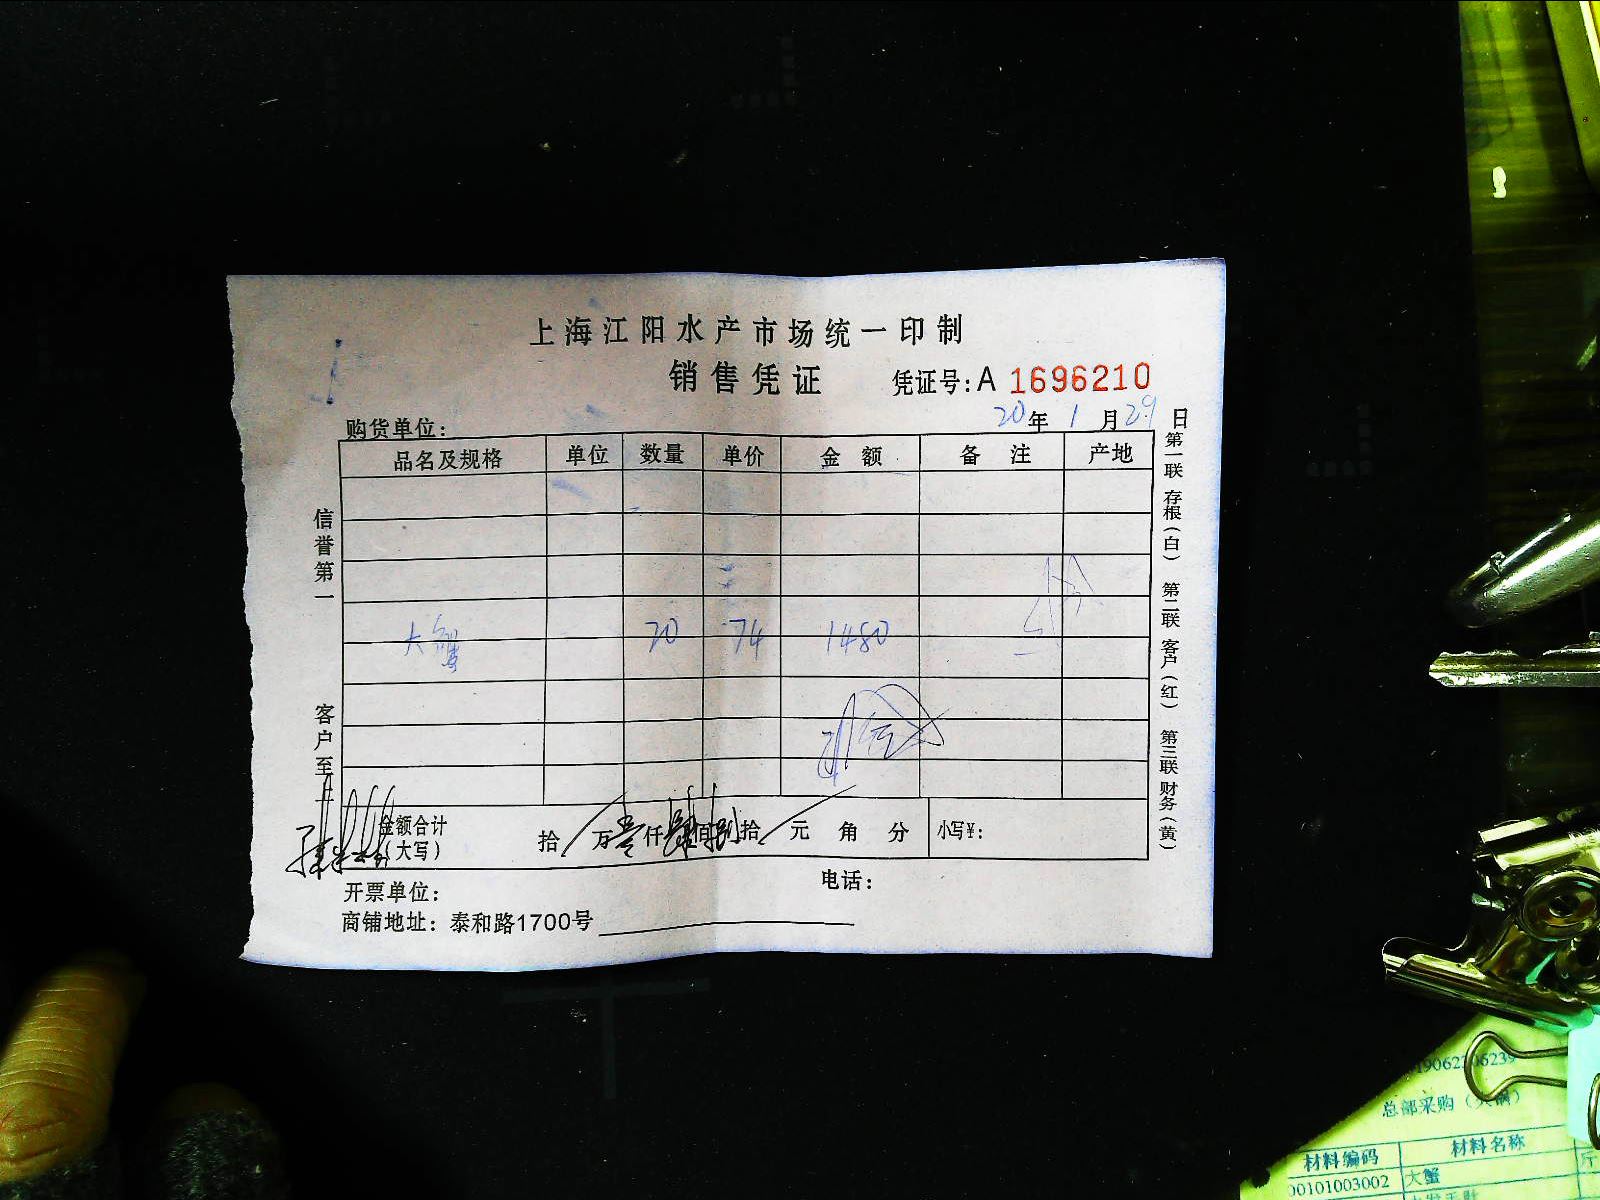 上海江阳水产市场统一印制
销售凭证 凭证号:A 1696210
20年 1 月 29 日
购货单位:
品名及规格 单位 数量 单价 金额 备注 产地
大蟹 20 74 1480
信誉第一
客户至上
第一联 存根(白) 第二联 客户(红) 第三联 财务(黄)
金额合计(大写) 拾 万 壹 仟 肆 佰 捌 拾 元 角 分 小写¥:
开票单位: 电话:
商铺地址: 泰和路1700号
总部采购
材料编码 材料名称
00101003002 大蟹 斤